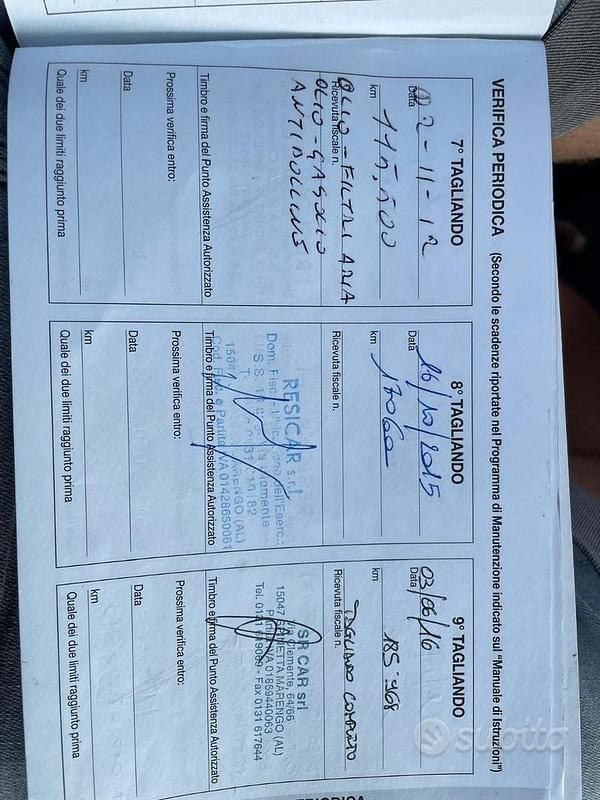 VERIFICA PERIODICA (Secondo le scadenze riportate nel Programma di Manutenzione indicato sul "Manuale di Istruzioni")
7° TAGLIANDO
02-11-12
Data
km
Ricevuta fiscale n.
OLIO-FILTRI ARIA
OLIO-GASOLIO
ANTIPOLLINE
Timbro e firma del Punto Assistenza Autorizzato
Prossima verifica entro:
Data
km
Quale dei due limiti raggiunto prima
8° TAGLIANDO
16/10/2015
Data
km
Ricevuta fiscale n.
RESICAR s.r.l.
Dom. Fisc.
15047
MARENGO (AL)
Cod. Fisc. e Partita IVA 01428650061
Timbro e firma del Punto Assistenza Autorizzato
Prossima verifica entro:
Data
km
Quale dei due limiti raggiunto prima
9° TAGLIANDO
03/06/16
Data
185.368
km
TAGLIANDO COMPLETO
Ricevuta fiscale n.
SR CAR srl
Clemente, 64/66
15047 SPINETTA MARENGO (AL)
Partita IVA 01859440063
Tel. 0131 619069 - Fax 0131 617644
Timbro e firma del Punto Assistenza Autorizzato
Prossima verifica entro:
Data
km
Quale dei due limiti raggiunto prima
subito